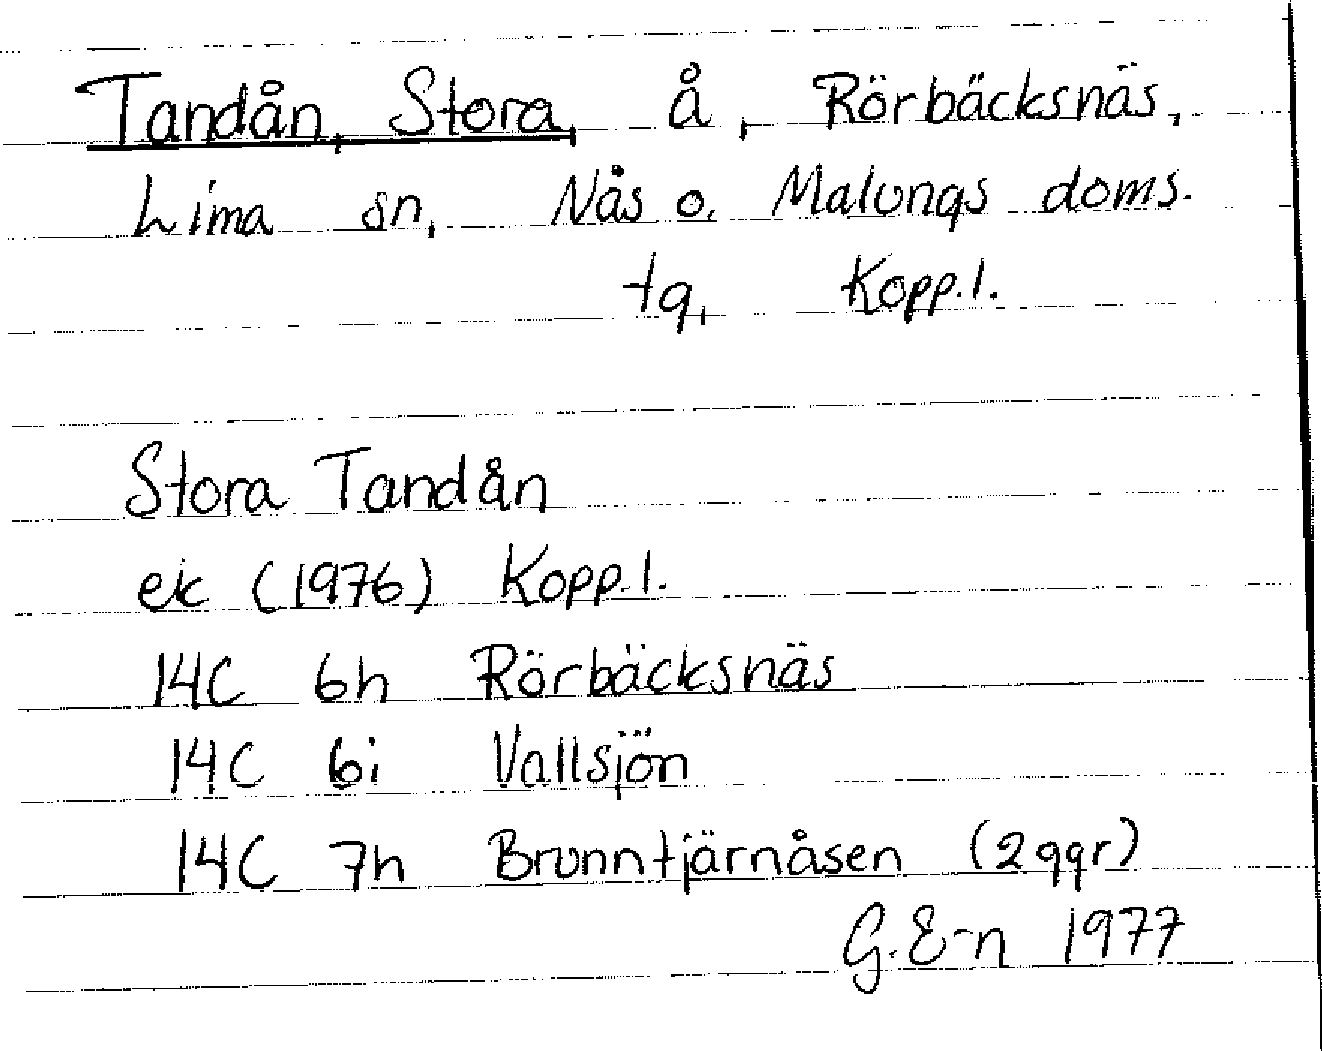 Tandån, Stora, å, Rörbäcksnäs,
Lima sn, Nås o. Malungs doms.
tg, Kopp.l.
Stora Tandån
ek (1976) Kopp.l.
14C 6h Rörbäcksnäs
14C 6i Vallsjön
14C 7h Brunntjärnåsen (2ggr)
G.E-n 1977